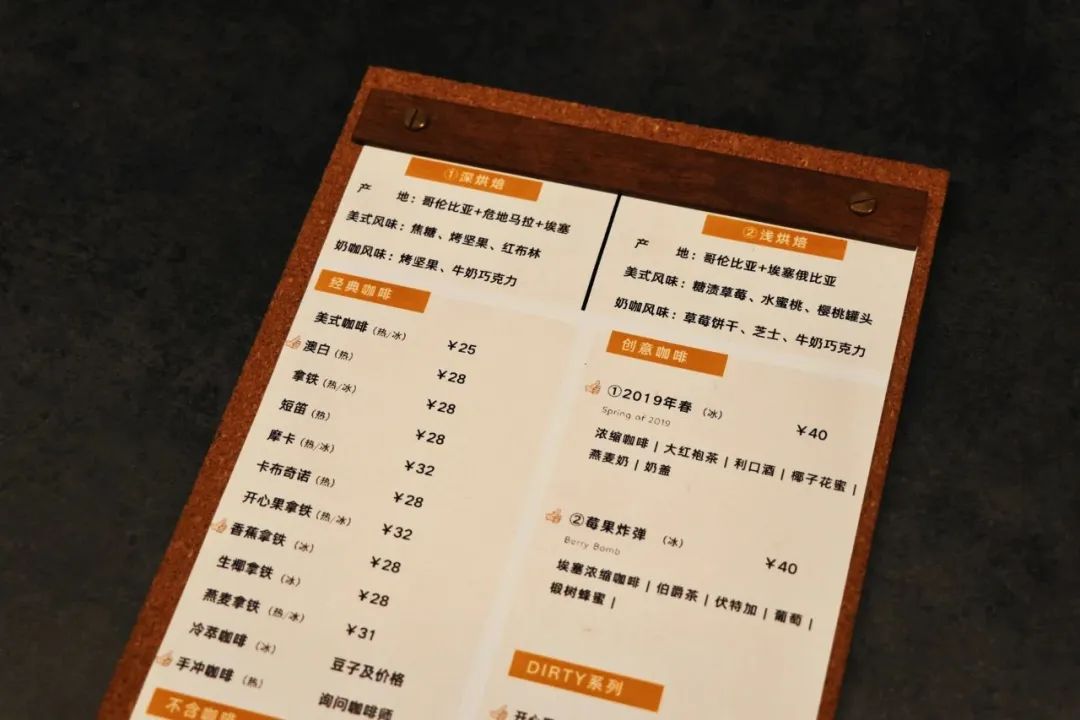 ①深烘焙
产 地：哥伦比亚+危地马拉+埃塞
美式风味：焦糖、烤坚果、红布林
奶咖风味：烤坚果、牛奶巧克力
②浅烘焙
产 地：哥伦比亚+埃塞俄比亚
美式风味：糖渍草莓、水蜜桃、樱桃罐头
奶咖风味：草莓饼干、芝士、牛奶巧克力
经典咖啡
美式咖啡（热/冰） ￥25
澳白（热） ￥28
拿铁（热/冰） ￥28
短笛（热） ￥28
摩卡（热/冰） ￥32
卡布奇诺（热） ￥28
开心果拿铁（热/冰） ￥32
香蕉拿铁（冰） ￥28
生椰拿铁（冰） ￥28
燕麦拿铁（热/冰） ￥31
冷萃咖啡（冰） 豆子及价格
手冲咖啡（热） 询问咖啡师
不含咖啡
创意咖啡
①2019年春（冰） ￥40
Spring of 2019
浓缩咖啡 | 大红袍茶 | 利口酒 | 椰子花蜜 |
燕麦奶 | 奶盖
②莓果炸弹（冰） ￥40
Berry Bomb
埃塞浓缩咖啡 | 伯爵茶 | 伏特加 | 葡萄 |
椴树蜂蜜 |
DIRTY系列
开心